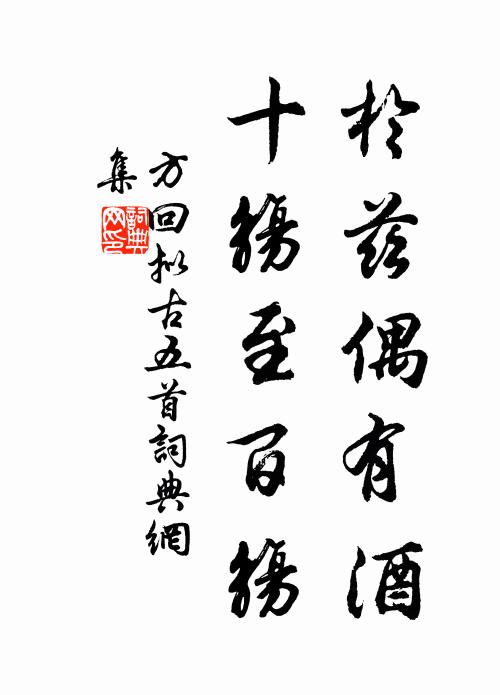 於茲偶有酒
十觴至百觴
方回拟古五首詞典網
集
詞典
网印